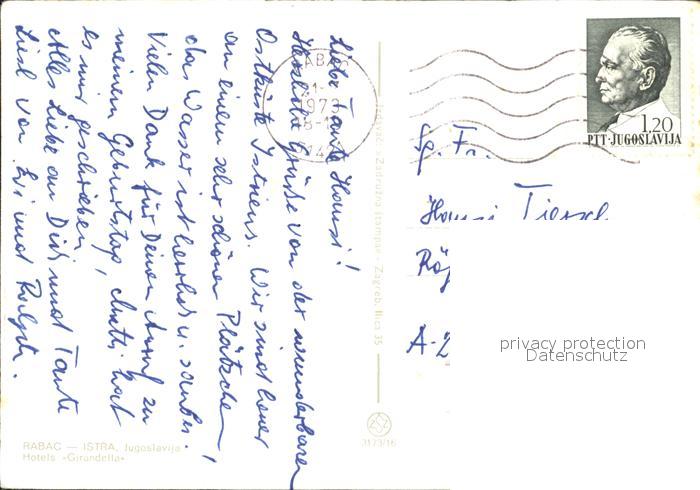 Liebe Tante Hansi!
Herzliche Grüße von der wunderbaren
Ostküste Istriens. Wir sind heuer
an einem sehr schönen Plätzchen,
das Wasser ist herrlich u. sauber.
Vielen Dank für Deinen Anruf zu
meinem Geburtstag, Mutti hat
es mir geschrieben.
Alles Liebe an Dich und Tante
Liesl von Evi und Rolf
RABAC — ISTRA, Jugoslavija
Hotels «Girandella»
Zadružna štampa - Zagreb, Ilica 35
3173/16
RABAC
1.20
PTT·JUGOSLAVIJA
Sg. Fr.
Hansi
A-2
privacy protection
Datenschutz